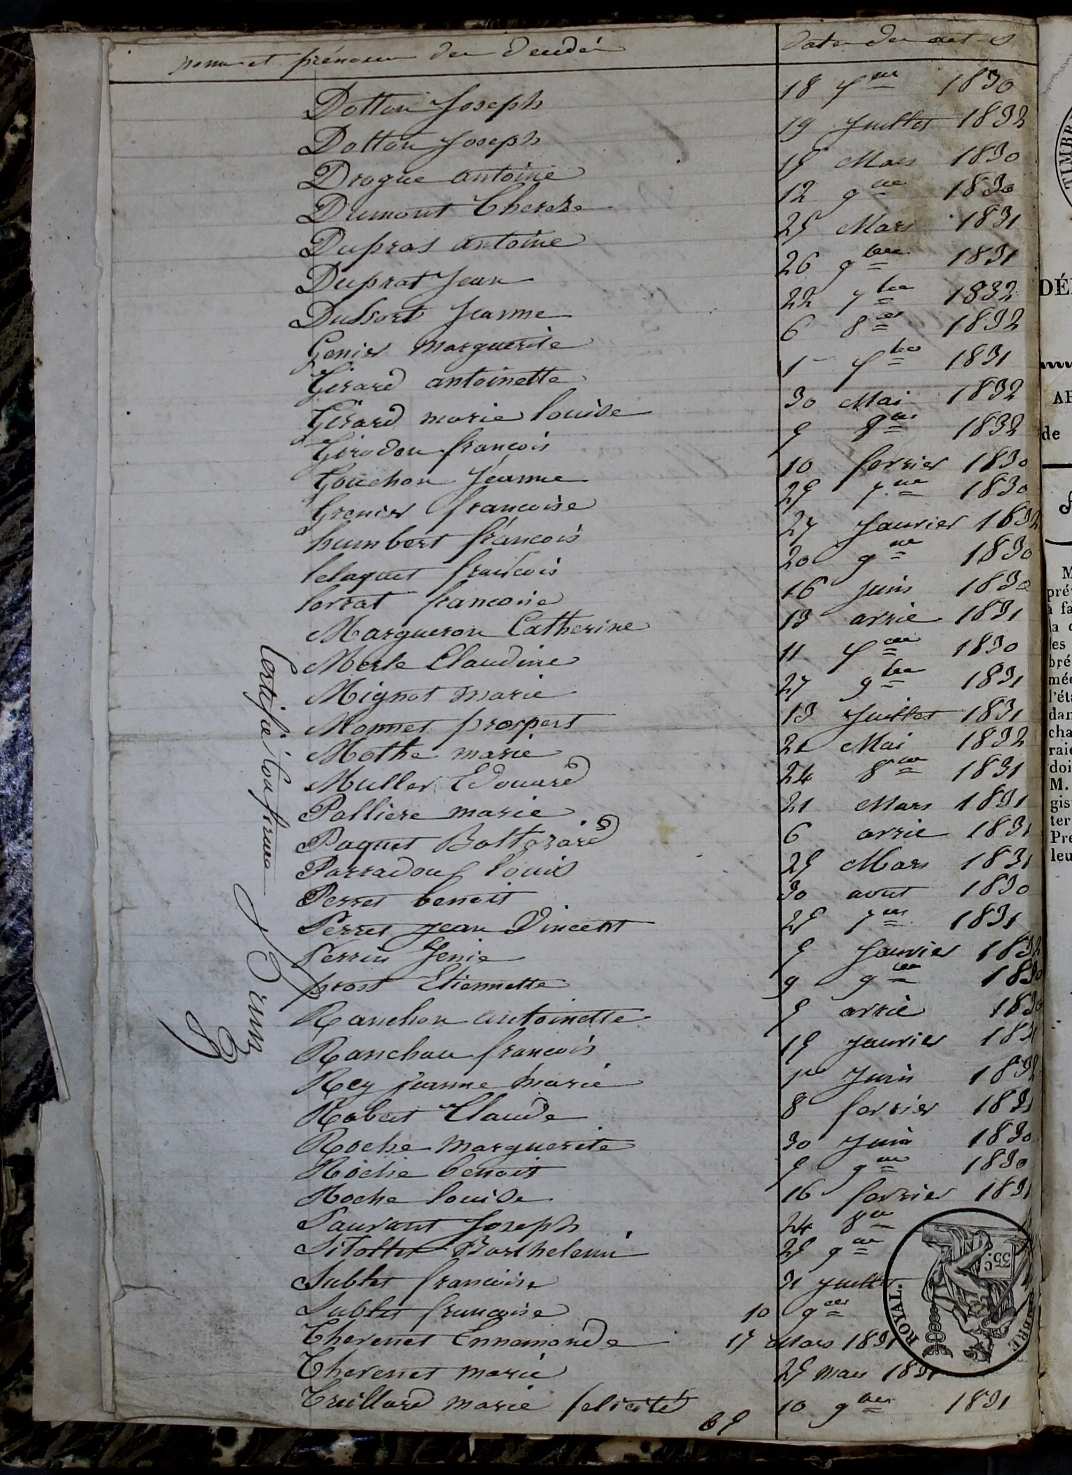 nom et prénom du décédé date des actes
Dotton Joseph 18 7bre 1830
Dotton Joseph 19 Juillet 1832
Drogue antoine 15 Mars 1830
Dumont Therese 12 9bre 1830
Dupras antoine 25 Mars 1831
Duprat Jean 26 9bre 1831
Dussort Jeanne 22 7bre 1832
Genier marguerite 6 8bre 1832
Girard antoinette 1er 7bre 1831
Girard marie louise 30 Mai 1832
Girodon françois 5 8bre 1832
Gouchon Jeanne 10 fevrier 1830
Grenier francoise 25 7bre 1830
humbert françois 27 Janvier 1832
pelaguet francois 20 9bre 1830
lorrat francoise 16 Juin 1830
Margueron Catherine 13 avril 1831
Merle Claudine 11 7bre 1830
Mignot marie 27 9bre 1831
Monnet prospert 13 Juillet 1831
Mothe marie 21 Mai 1832
Muller Edouard 24 8bre 1831
Palliere marie 21 Mars 1831
Paquet Baltazard 6 avril 1831
Parradou louis 25 Mars 1831
Perret benoit 30 aout 1830
Perret Jean Vincent 25 7bre 1831
Perrin Genie 5 Janvier 1832
prost Etiennette 9 9bre 1830
Ranchon antoinette 5 avril 1830
Ranchon francois 15 Janvier 183
Rey jeanne Marie 1er Juin 1832
Robert Claude 8 fevrier 1831
Roche Marguerite 30 Juin 1830
Roche benoit 5 9bre 1830
Roche louise 16 fevrier 1831
Saurant Joseph 24 8bre
Sitollet Barthelemi 25 9bre
Sublet francoise 31 Juillet
Sublet francoise 10 9bre
Thevenet Ennamonde 17 Mars 1831
Thevenet marie 25 mars 1831
Truillard marie felicité 10 9bre 1831
Certifié Conforme
ROYAL.
35 C
TIMBR
DÉ
AR
de